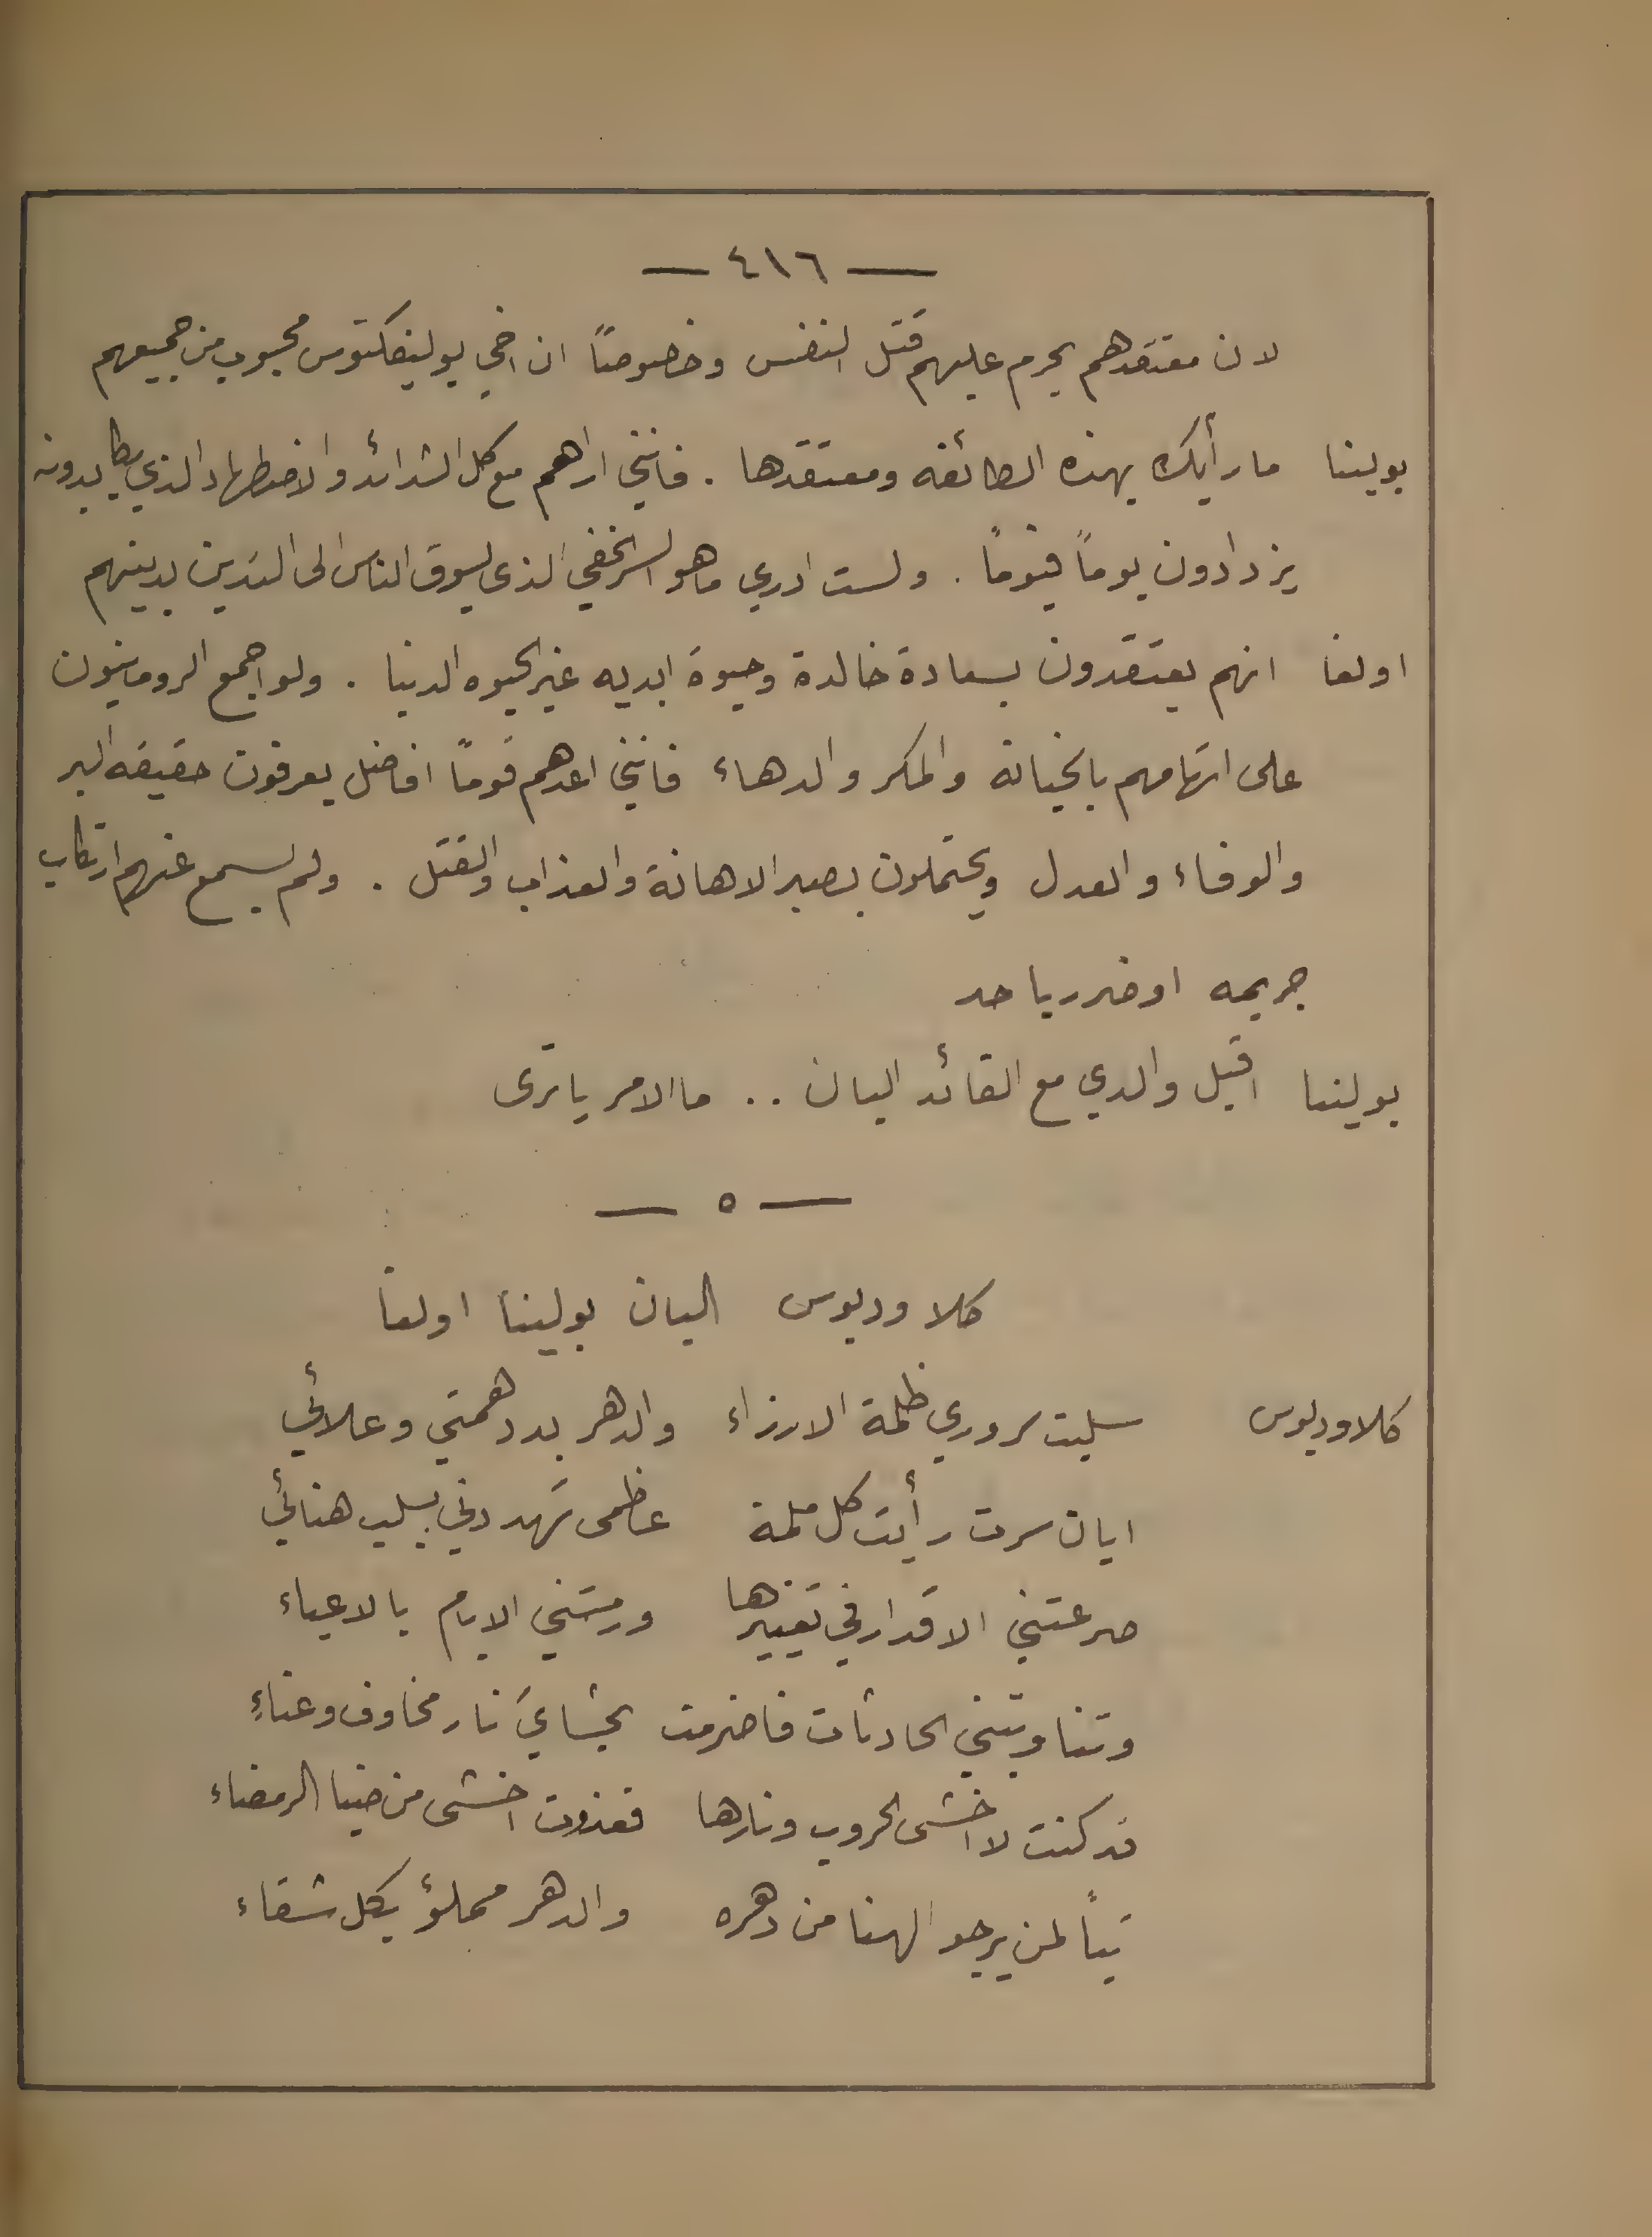 — ٤١٦ —
لان معتقدهم يحرم عليهم قتل النفس وخصوصاً ان اخي بولينكتوس محبوب من جميعهم
بولينا ما رأيك بهذه الطائفه ومعتقدها . فانني اراهم مع كل الشدائد والاضطهاد الذي يكابدونه
يزدادون يوماً فيوماً . ولست ادري ما هو السر الخفي الذى يسوق الناس الى التدين بدينهم
اولفا انهم يعتقدون بسعادة خالدة وحيوة ابديه غير الحيوه الدنيا . ولو اجمع الرومانيون
على اتهامهم بالخيانة والمكر والدهاء فانني اعدهم قوماً افاضل يعرفون حقيقه البر
والوفاء والعدل ويحتملون بصبر الاهانة والعذاب والقتل . ولم يسمع عنهم ارتكاب
جريمه او ضرر باحد
بولينا اقبل والدي مع القائد البان .. ما الامر يا ترى
— ٥ —
كلاوديوس البان بولينا اولفا
كلاوديوس سلبت سروري ظلمة الارزاء والدهر بدد همتي وعلائي
ايان سرت رأيت كل ملمة عظمى تهددني بسلب هنائي
صرعتني الاقدار في تغييرها ورمتني الايام بالاعياء
وتناوبتني الحادثات فاضرمت بحشايَ نار مخاوف وعناءِ
قد كنت لا اخشى الحروب ونارها فغدوت اخشى من ضيا الرمضاء
تباً لمن يرجو الهنا من دهره والدهر مملؤ بكل شقاء